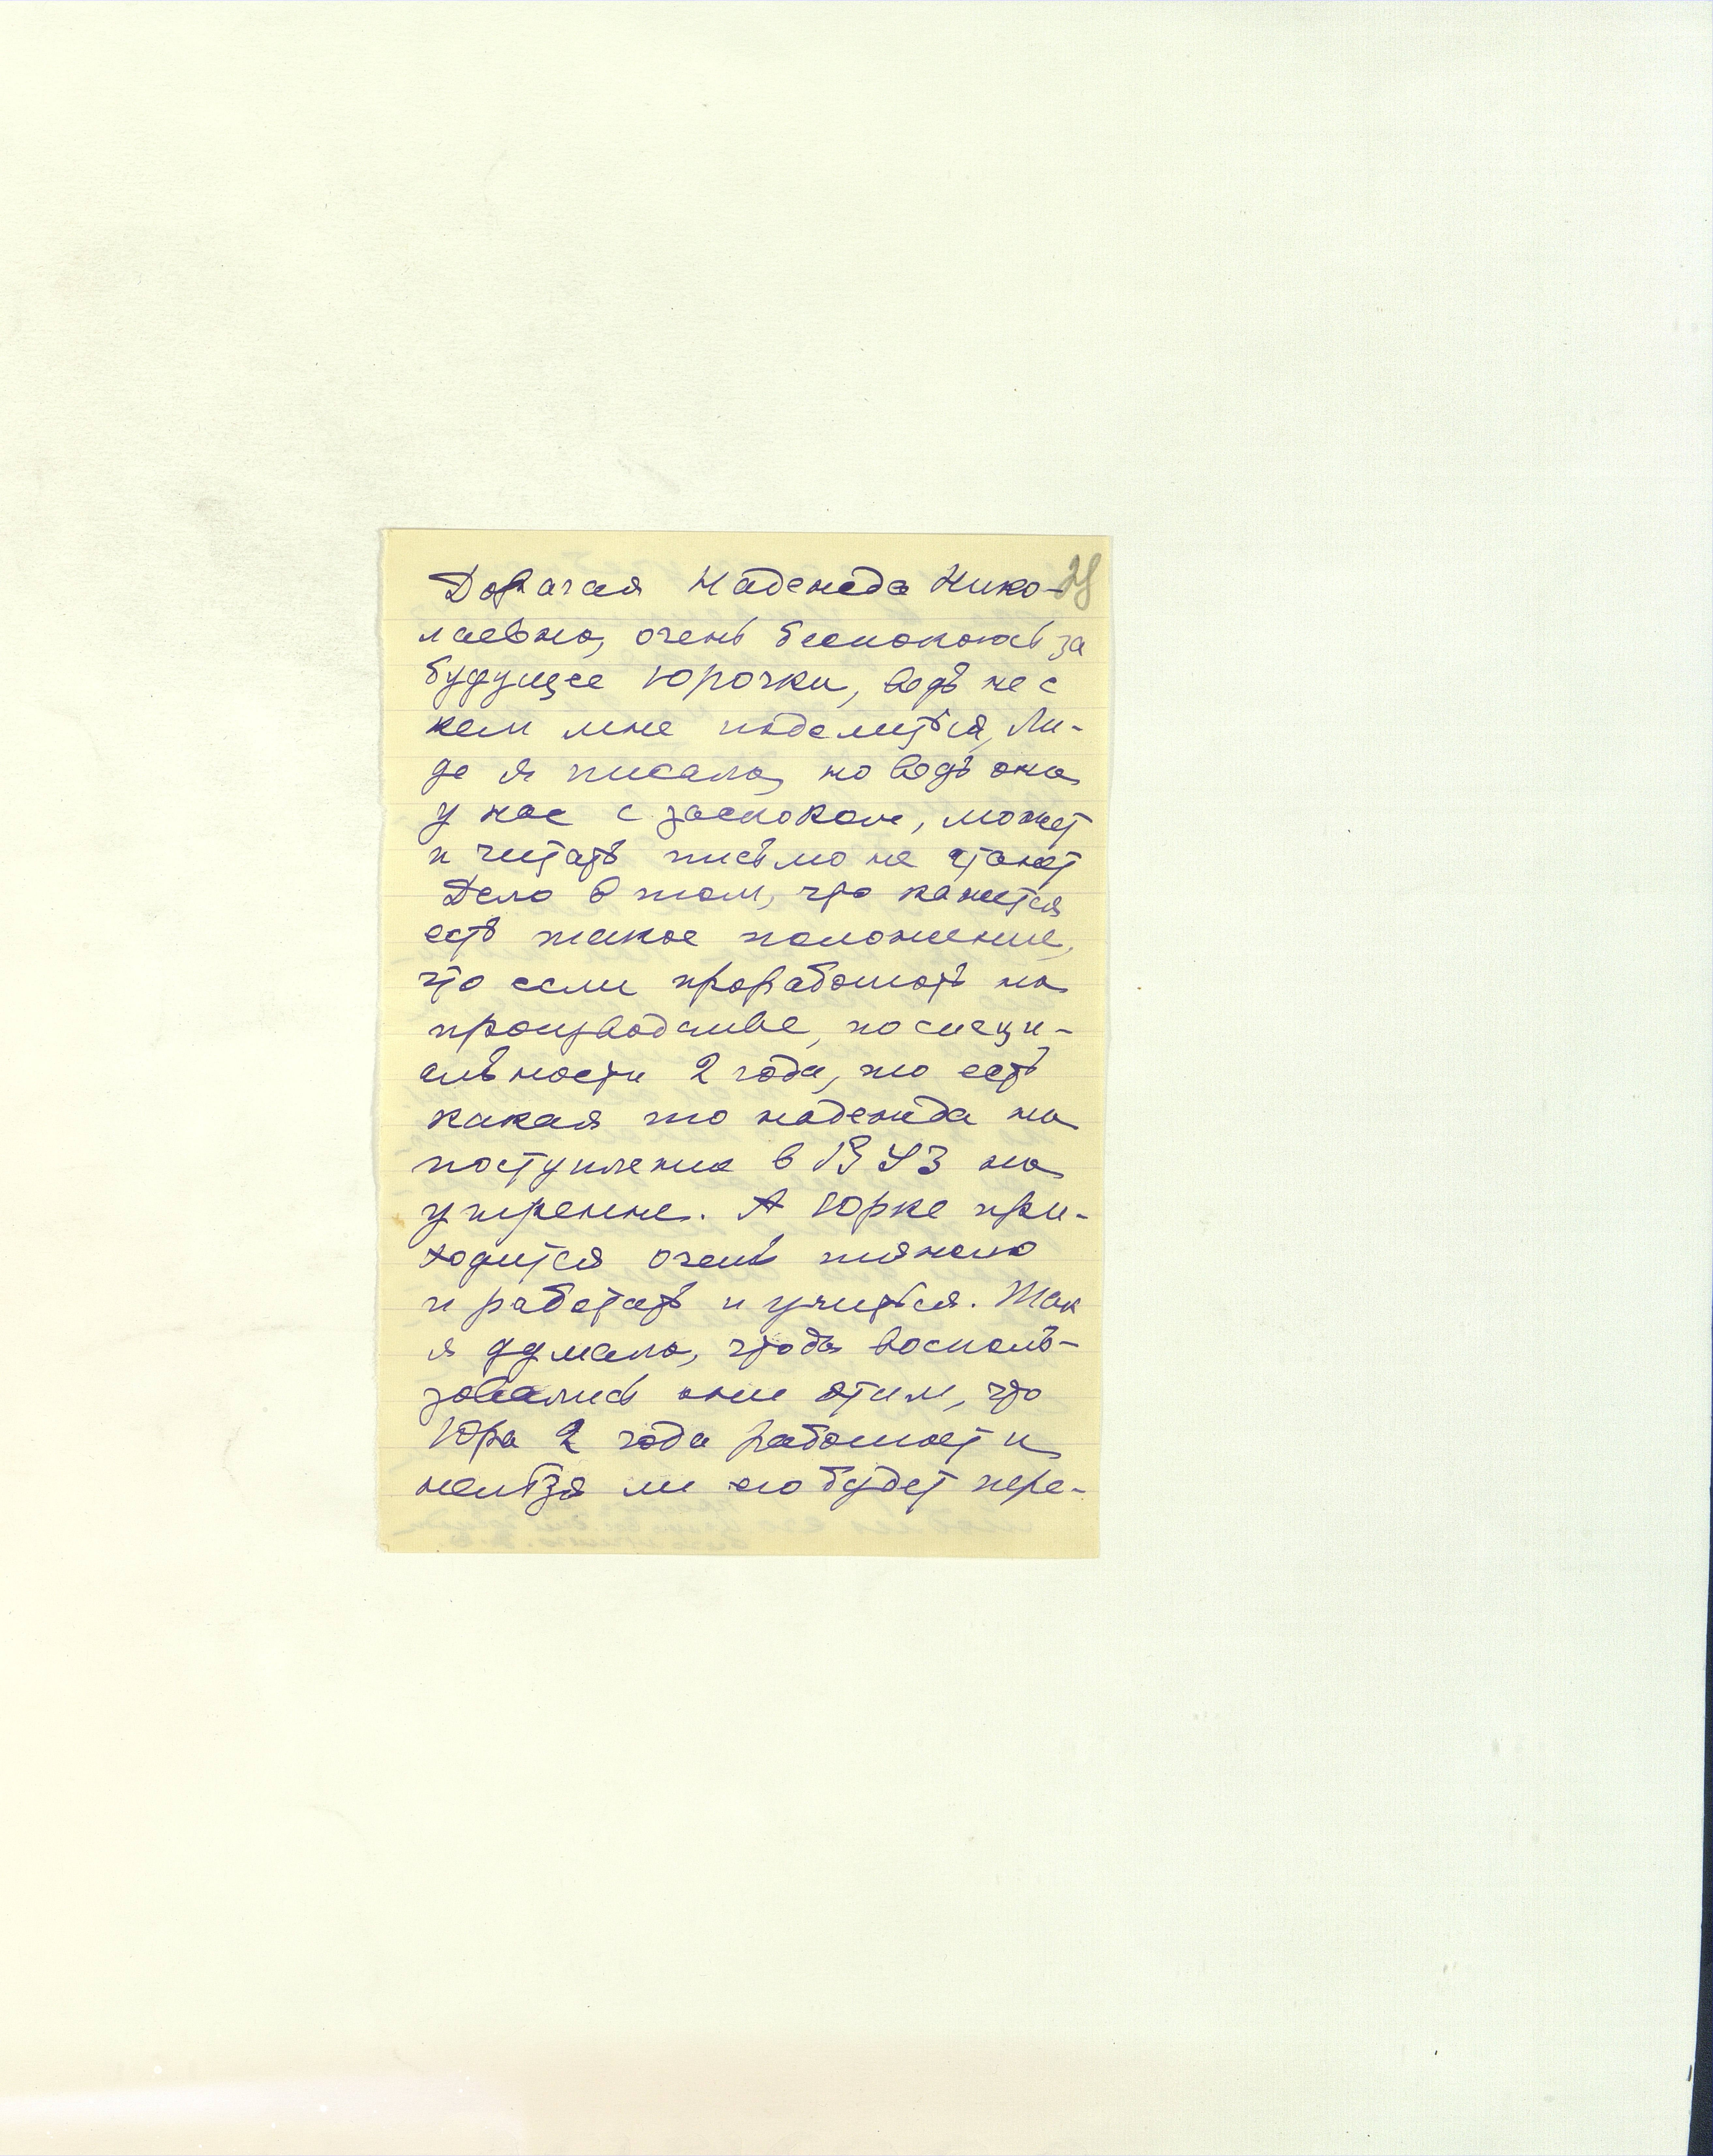 Дорагая Надежда Нико-
лаевна, очень беспокоюсь за
будущее Юрочки, ведь не с
кем мне поделиться, Ли-
де я писала, но ведь она
у нас с заскоком, может
и читать письмо не станет
Дело в том, что кажется
есть такое положение,
что если проработать на
производстве, по специ-
альности 2 года, то есть
какая то надежда на
поступление в ВУЗ на
утренне. А Юрке при-
ходится очень тяжело
и работать и учиться. Так
я думала, чтобы восполь-
зовались они этим, что
Юра 2 года работает и
нельзя ли его будет пере-